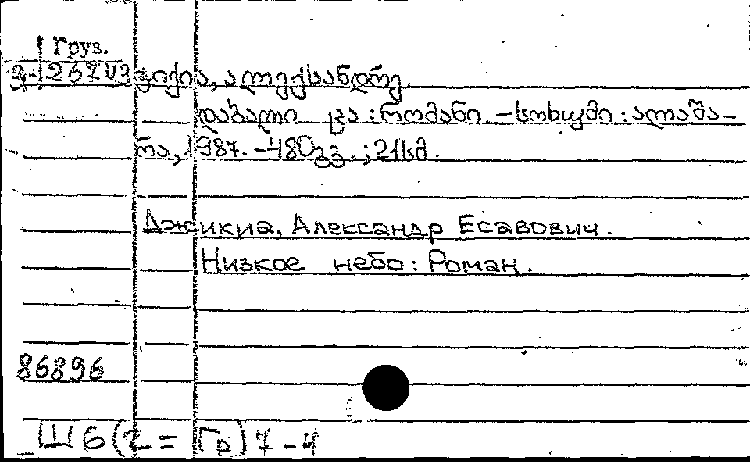 Груз.
ჯიქია, ალექსანდრე
დაბალი ცა : რომანი. – სოხუმი : ალაშა-
რა, 1987. – 480 გვ. ; 21 სმ.
Джикиа, Александр Есавович.
Низкое небо : Роман.
86896
Ш6(2=Гр)7-4